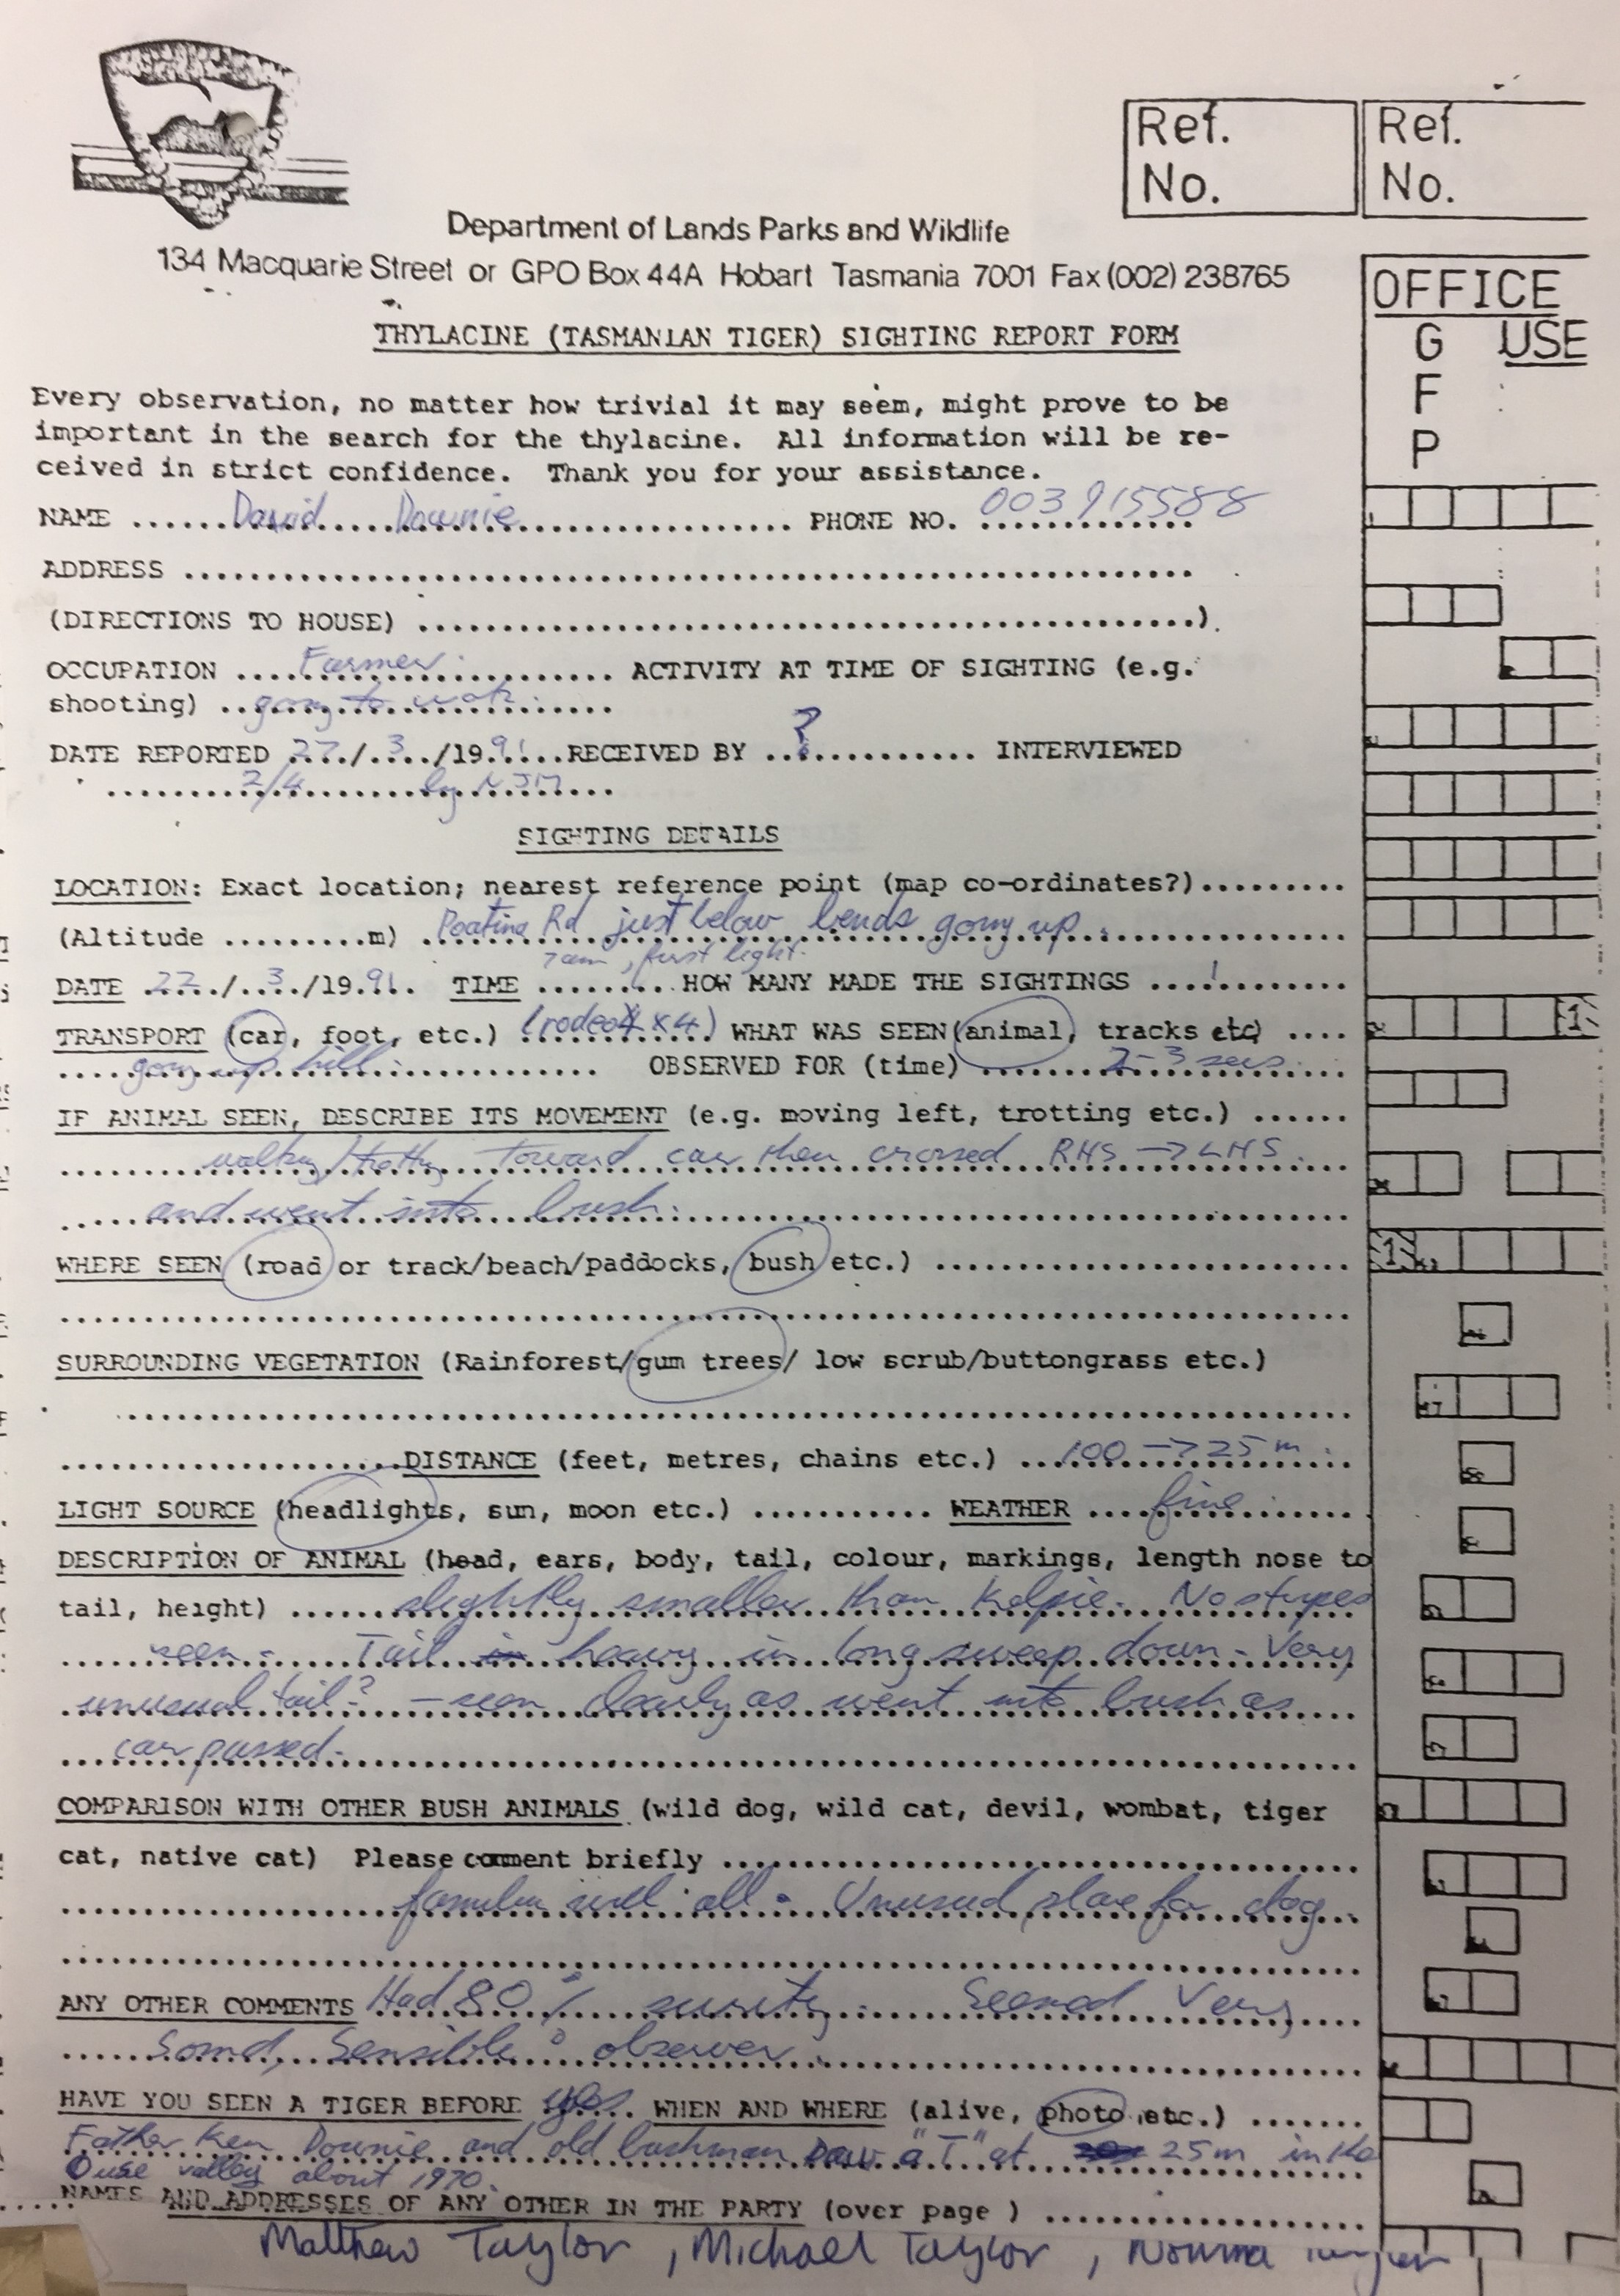 Ref. No.
Ref. No.
Department of Lands Parks and Wildlife
134 Macquarie Street or GPO Box 44A Hobart Tasmania 7001 Fax (002) 238765
OFFICE USE
G
F
P
THYLACINE (TASMANIAN TIGER) SIGHTING REPORT FORM
Every observation, no matter how trivial it may seem, might prove to be
important in the search for the thylacine. All information will be re-
ceived in strict confidence. Thank you for your assistance.
NAME ...... David Downie ...... PHONE NO. 003 915588
ADDRESS ......
(DIRECTIONS TO HOUSE) ......).
OCCUPATION .... Farmer ...... ACTIVITY AT TIME OF SIGHTING (e.g.
shooting) .. going to work ......
DATE REPORTED 27/3/1991 ... RECEIVED BY ...?...... INTERVIEWED
2/4 by NJM
SIGHTING DETAILS
LOCATION: Exact location; nearest reference point (map co-ordinates?).........
(Altitude .........m) Poatina Rd just below bends going up
7am, first light.
DATE 22/3/1991. TIME ........ HOW MANY MADE THE SIGHTINGS ....1....
TRANSPORT (car, foot, etc.) (rodeo 4x4) WHAT WAS SEEN (animal, tracks etc) ....
going up hill ...... OBSERVED FOR (time) ...... 2-3 secs.
IF ANIMAL SEEN, DESCRIBE ITS MOVEMENT (e.g. moving left, trotting etc.) ......
walking/trotting toward car then crossed RHS → LHS.
and went into bush.
WHERE SEEN (road or track/beach/paddocks, bush etc.) ......
SURROUNDING VEGETATION (Rainforest/gum trees/ low scrub/buttongrass etc.)
DISTANCE (feet, metres, chains etc.) ... 100 → 25 m.
LIGHT SOURCE (headlights, sun, moon etc.) ........... WEATHER .... fine ......
DESCRIPTION OF ANIMAL (head, ears, body, tail, colour, markings, length nose to
tail, height) ...... slightly smaller than Kelpie. No stripes
seen - Tail heavy in long sweep down - Very
unusual tail? - seen clearly as went into bush as
car passed -
COMPARISON WITH OTHER BUSH ANIMALS (wild dog, wild cat, devil, wombat, tiger
cat, native cat) Please comment briefly ......
familiar with all. Unusual place for dog
ANY OTHER COMMENTS Had 80% surity. Seemed Very
Sound, Sensible observer.
HAVE YOU SEEN A TIGER BEFORE yes .. WHEN AND WHERE (alive, photo etc.) .......
Father Ken Downie and old bushman saw a "T" at 25m in the
Ouse valley about 1970.
NAMES AND ADDRESSES OF ANY OTHER IN THE PARTY (over page ) ......
Matthew Taylor, Michael Taylor, Norma